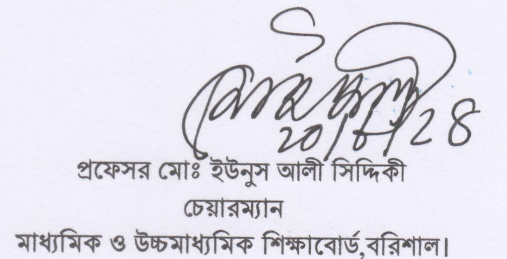 প্রফেসর মোঃ ইউনুস আলী সিদ্দিকী
চেয়ারম্যান
মাধ্যমিক ও উচ্চমাধ্যমিক শিক্ষাবোর্ড,বরিশাল।